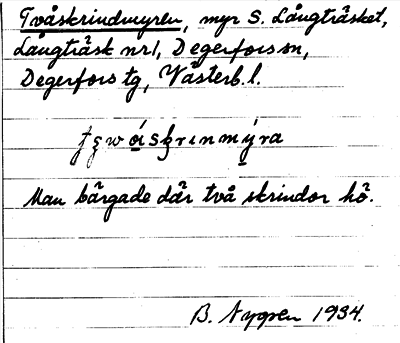 Tvåskrindmyren, myr S. Långträsket,
Långträsk nr1, Degerfors sn,
Degerfors tg, Västerb. l.
Man bärgade där två skrindor hö.
B. Nygren 1934.